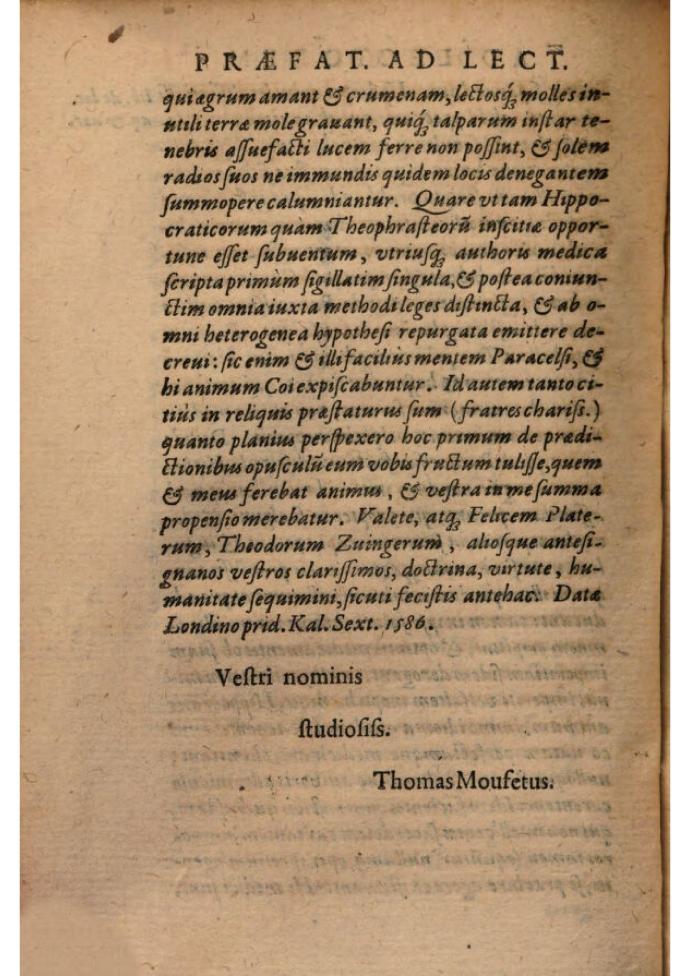 PRÆFAT. AD LECT.
qui ægrum amant & crumenam, lectosq́ꝫ molles in-
utili terræ mole grauant, quiq́ꝫ talparum inſtar te-
nebris aſſuefacti lucem ferre non poſſint, & ſolem
radios ſuos ne immundis quidem locis denegantem
ſummopere calumniantur. Quare vt tam Hippo-
craticorum quàm Theophraſteorũ inſcitiæ oppor-
tune eſſet ſubuentum, vtriuſqꝫ authoris medica
ſcripta primùm ſigillatim ſingula, & poſtea coniun-
ctim omnia iuxta methodi leges diſtincta, & ab o-
mni heterogenea hypotheſi repurgata emittere de-
creui: ſic enim & illi faciliùs mentem Paracelſi, &
hi animum Coi expiſcabuntur. Id autem tanto ci-
tiùs in reliquis præſtaturus ſum (fratres chariſſ.)
quanto planius perſpexero hoc primum de prædi-
ctionibus opuſculũ eum vobis fructum tuliſſe, quem
& meus ferebat animus, & veſtra in me ſumma
propenſio merebatur. Valete, atqꝫ Felicem Plate-
rum, Theodorum Zuingerum, alioſque anteſi-
gnanos veſtros clariſſimos, doctrina, virtute, hu-
manitate ſequimini, ſicuti feciſtis antehac. Datæ
Londino prid. Kal. Sext. 1586.
Veſtri nominis
ſtudioſiſs.
Thomas Moufetus.